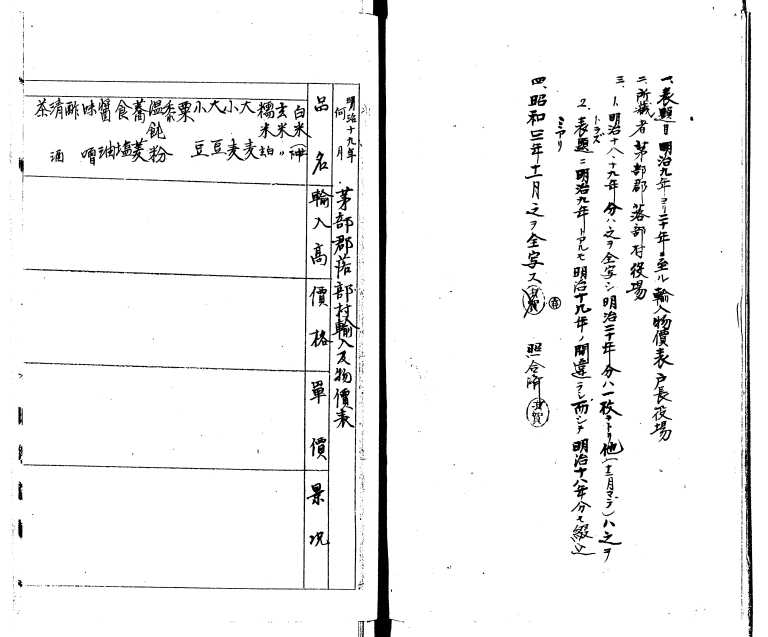 一、表題 明治九年ヨリ二十年ニ至ル輸入物價表戸長役場
二、所蔵者 茅部郡落部村役場
三、1、明治十八、十九年分ハ之ヲ全写シ明治二十年分ハ一枚ヲトリ他(十二月マデ)ハ之ヲ
トラズ
2、表題ニ明治九年トアルモ明治十九年ノ間違ラシ而シテ明治十八年分モ綴込
ミアリ
四、昭和三年十一月之ヲ全写ス 須賀 照合済 須賀
明治十九年
何月
茅部郡落部村輸入及物價表
品名 輸入高 價格 單價 景況
白米
玄米〃
糯米
大麦
小麦
大豆
小豆
粟
黍
温飩粉
蕎麦
食塩
醤油
味噌
酢
清酒
茶